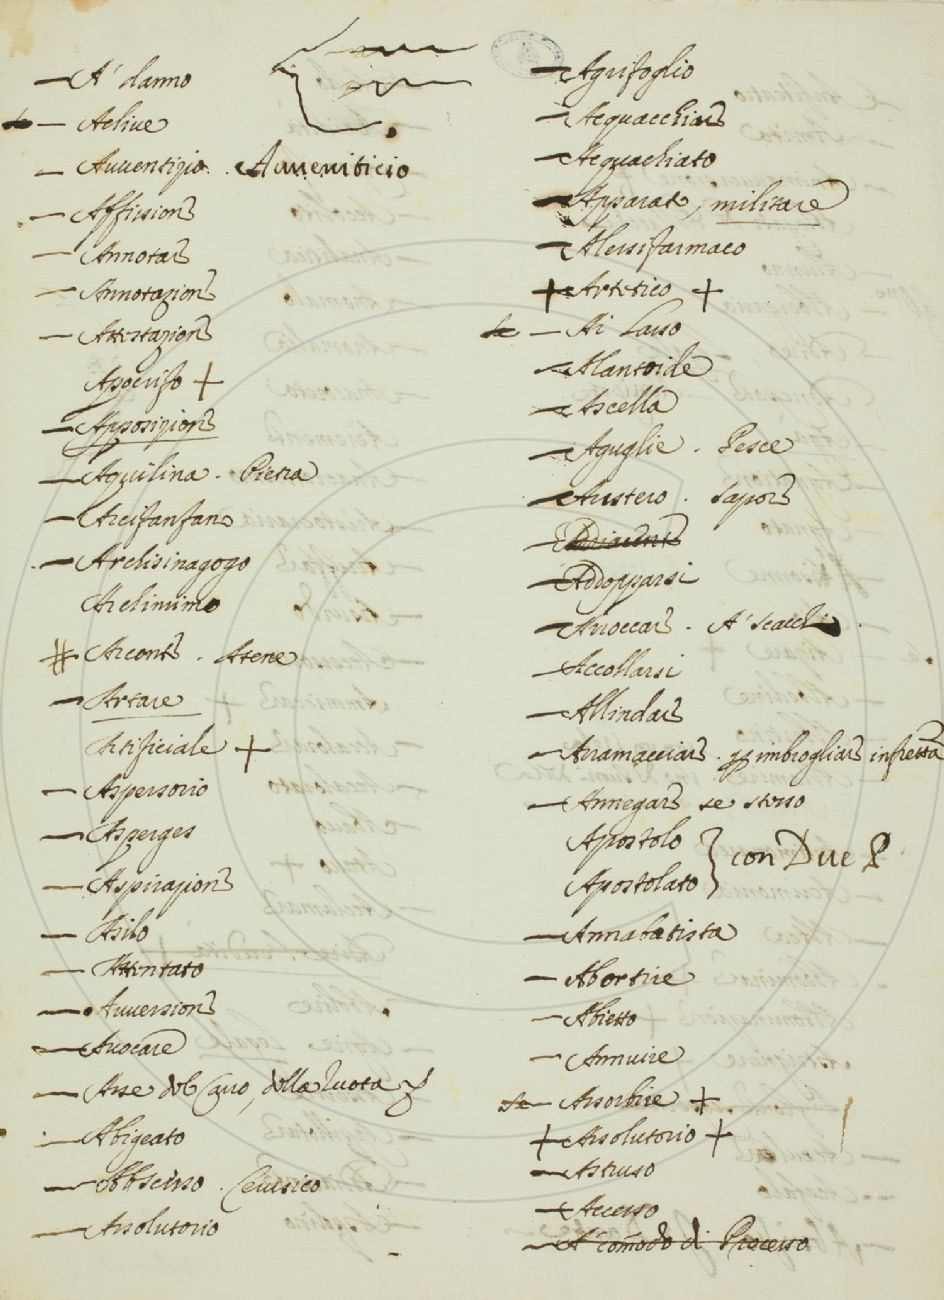 A' danno
Aclive
Avventizio. Avveniticio
Affusione
Annotare
Annotazione
Attestazione
Apocrifo +
Apposizione
Aquilina. Pietra
Arcifanfano
Archisinagogo
Archimimo
# Arconte. Atene
Artare
Artificiale +
Aspersorio
Asperges
Aspirazione
Asilo
Attentato
Avversione
Avocare
Asse del Carro, della Ruota
Abigeato
Abscisso. Cerusico
Assolutorio
Agrifoglio
Acquacchiare
Acquachiato
Apparato, militare
Alessifarmaco
+ Artetico +
Ai Lasso
Alantoide
Ascella
Aguglie. Pesce
Austero. Sapore
Addopparsi
Arroccare. A' Scacchi
Accollarsi
Allindare
Arramacciare. per imbrogliare in fretta
Annegare se stesso
Apostolo
Apostolato } con Due P
Annabatista
Abortire
Abietto
Annuire
Assorbire +
+ Assolutorio +
Astruso
Accesso
A' comodo di Processo